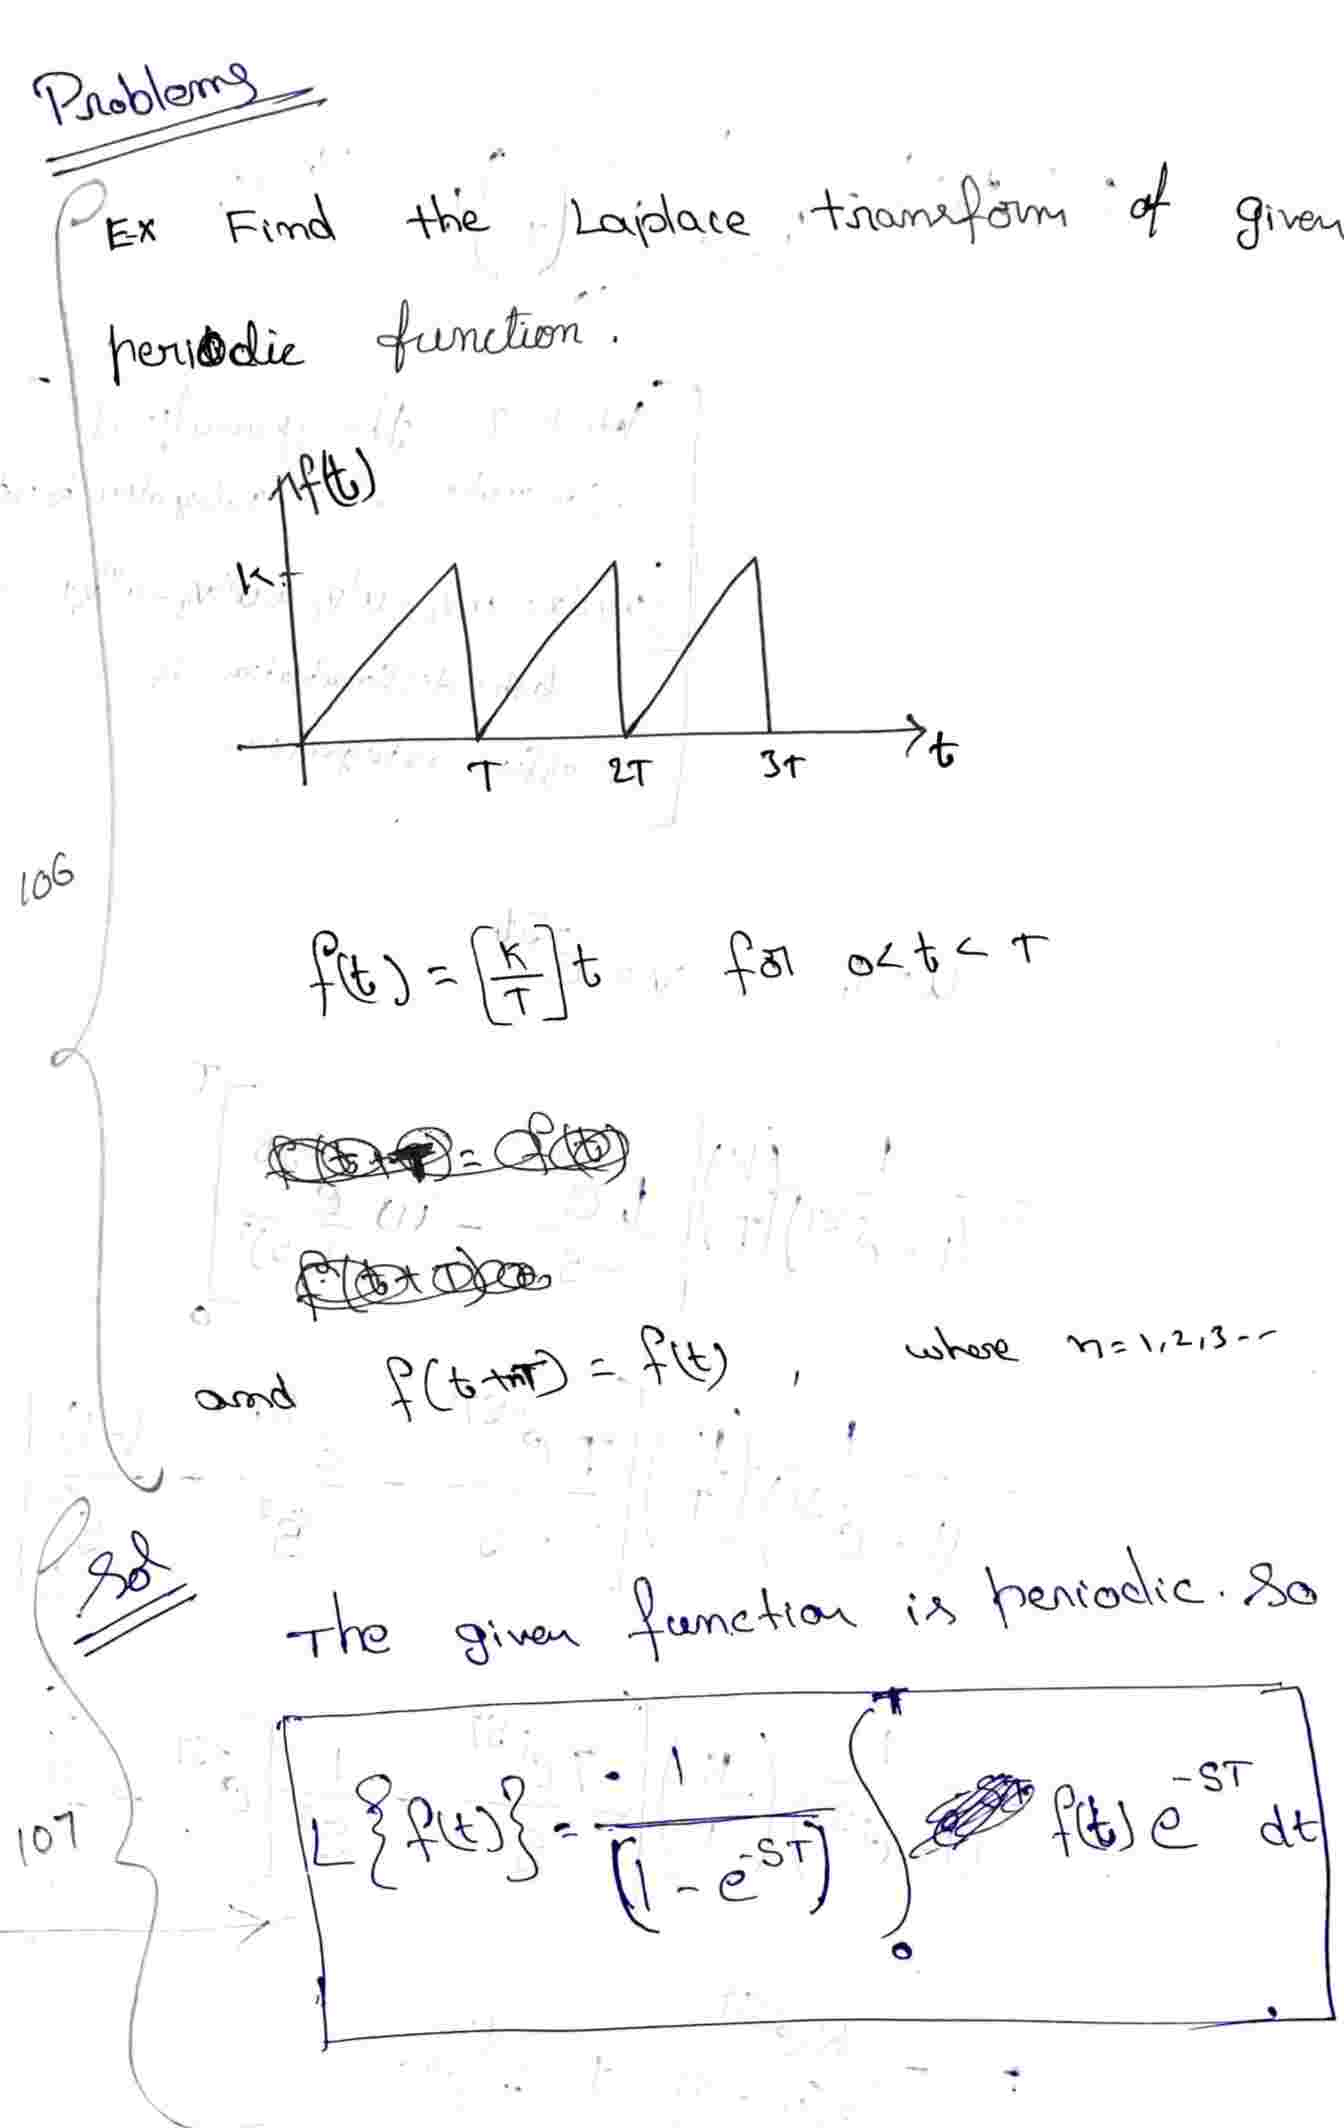 Problems
Ex Find the Laplace transform of given
periodic function.
f(t)
K
T 2T 3T t
f(t) = [K/T] t for 0 < t < T
106
and f(t+nT) = f(t), where n=1,2,3--
Sol
The given function is periodic. So
107
L{f(t)} = 1/(1 - e^-ST) ∫_0^T f(t) e^-ST dt